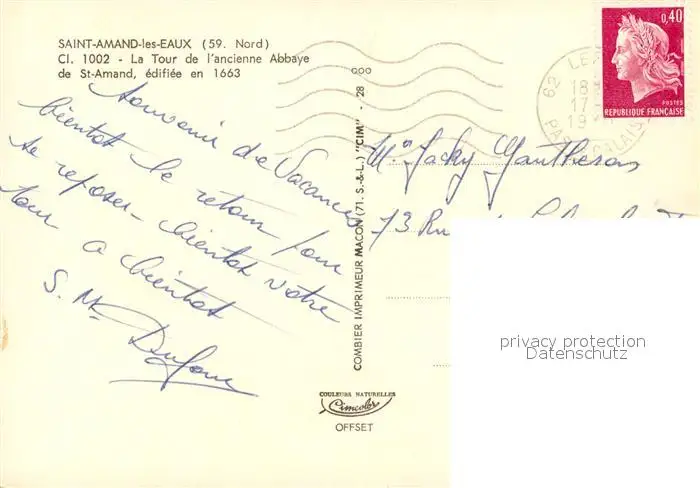 SAINT-AMAND-les-EAUX (59. Nord)
Cl. 1002 - La Tour de l'ancienne Abbaye
de St-Amand, édifiée en 1663
Souvenir de Vacances
bientot le retour pour
se reposer - bientot votre
tour a bientot
S. Me Dufour
COMBIER IMPRIMEUR MACON (71. S.-&-L.) "CIM" - 28
COULEURS NATURELLES
Cimcolor
OFFSET
0,40
POSTES
REPUBLIQUE FRANÇAISE
62
18
17
19
PAS
CALAIS
Jacky
73 Rue
privacy protection
Datenschutz